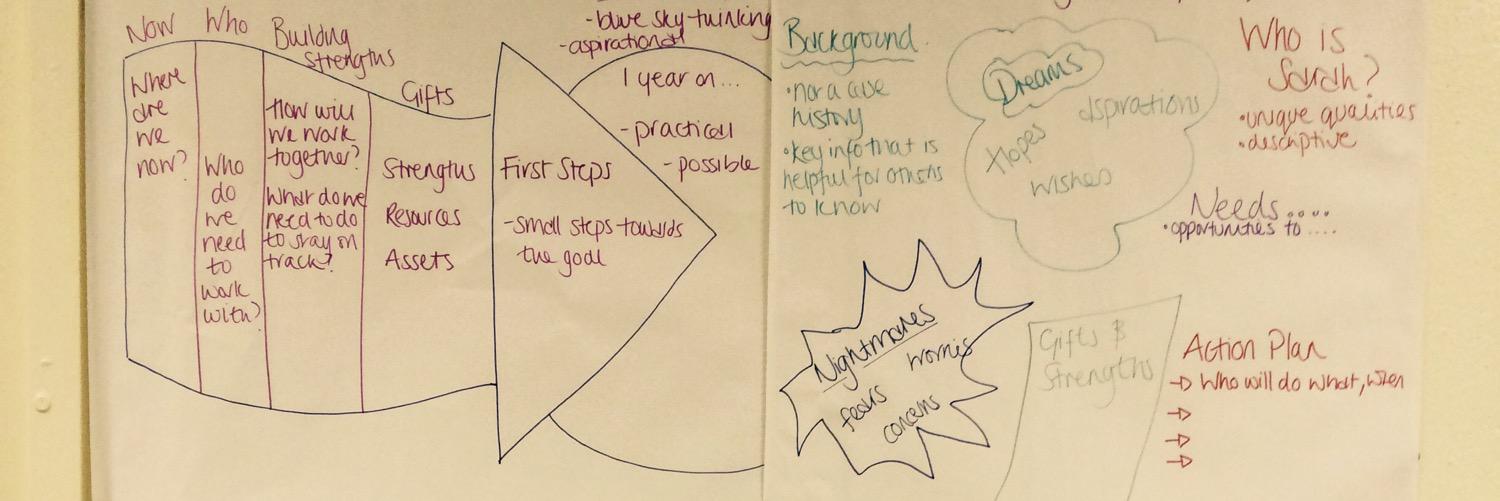 Now
Who
Building
Strengths
Where
are
we
now?
Who
do
we
need
to
work
with?
How will
we work
together?
What do we
need to do
to stay on
track?
Gifts
Strengths
Resources
Assets
First Steps
-small steps towards
the goal
-blue sky-thinking
-aspirational
1 year on...
-practical
-possible
Background
•not a case
history
•key info that is
helpful for others
to know
Dreams
aspirations
Hopes
wishes
Who is
Sarah?
•unique qualities
•descriptive
Needs....
•opportunities to ....
Nightmares
worries
fears
concerns
Gifts &
Strengths
Action Plan
→ Who will do what, when
→
→
→